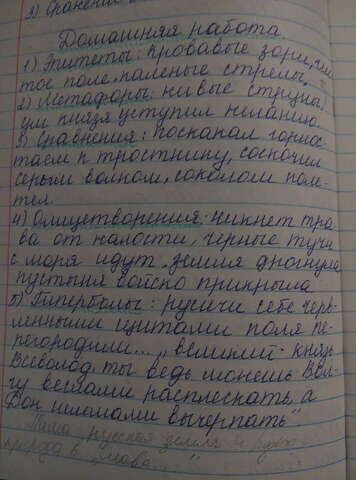 3) Сравнения
Домашняя работа.
1) Эпитеты: кровавые зори, чис
тое поле, каленые стрелы,
2) Метафоры: живые струны,
ум князя уступил желанию.
3) Сравнения: поскакал горнос-
таем к тростнику, соскочил
серым волком, соколом поле-
тел.
4) Олицетворения: никнет тра-
ва от жалости, черные тучи
с моря идут, земля дрогнула,
пустыня войско прикрыла
5) Гиперболы: русичи себе черв-
ленными щитами поля пе-
регородили... „великий князь
Всеволод, ты ведь можешь Вол-
гу веслами расплескать, а
Дон шлемами вычерпать".
Тема русская земля и
природа в „Слове..."